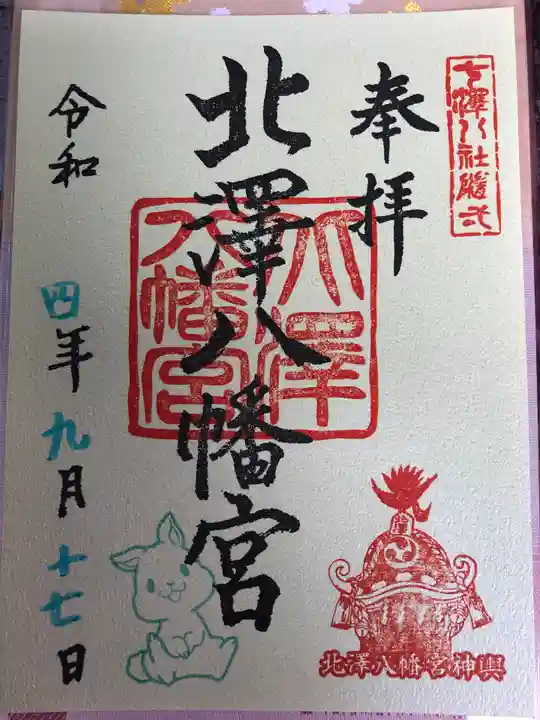 奉拝
北澤八幡宮
令和四年九月十七日
七澤八社随弌
北澤八幡宮
北澤八幡宮神輿